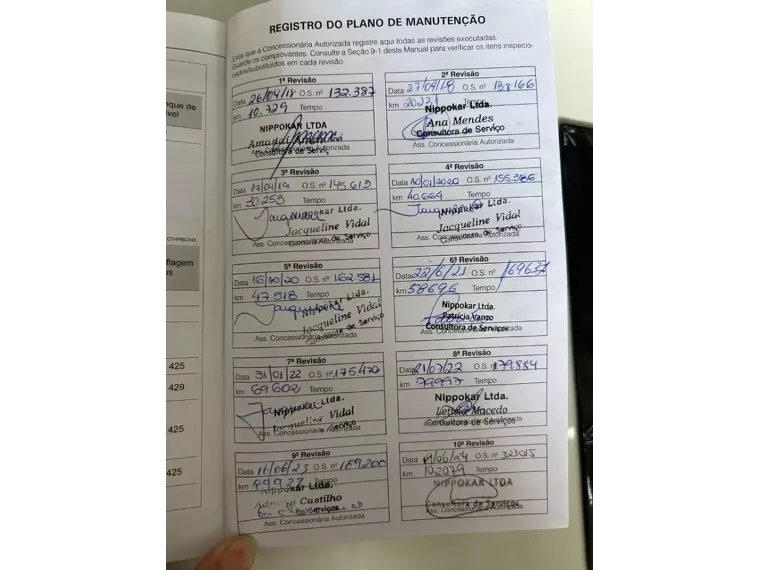 REGISTRO DO PLANO DE MANUTENÇÃO
Exija que a Concessionária Autorizada registre aqui todas as revisões executadas.
Guarde os comprovantes. Consulte a Seção 9-1 deste Manual para verificar os itens inspecio-
nados/substituídos em cada revisão
1ª Revisão
Data 26/04/18 O.S. nº 132.387
km 10.729 Tempo
NIPPOKAR LTDA
Consultora de Serviç
Ass. Concessionária Autorizada
2ª Revisão
Data 27/09/18 O.S. nº 138166
km Tempo
Nippokar Ltda.
Ana Mendes
Consultora de Serviço
Ass. Concessionária Autorizada
3ª Revisão
Data 17/04/19 O.S. nº 145.613
km 30253 Tempo
Nippokar Ltda.
Jacqueline Vidal
Consultora de Serviço
Ass. Concessionária Autorizada
4ª Revisão
Data 10/01/2020 O.S. nº 155.386
km 40664 Tempo
Nippokar Ltda.
Jacqueline Vidal
Consultora de Serviço
Ass. Concessionária Autorizada
5ª Revisão
Data 16/10/20 O.S. nº 162.581
km 47.518 Tempo
Nippokar Ltda.
Jacqueline Vidal
Consultora de Serviço
Ass. Concessionária Autorizada
6ª Revisão
Data 22/6/21 O.S. nº 169637
km 58696 Tempo
Nippokar Ltda.
Patrícia
Consultora de Serviços
Ass. Concessionária Autorizada
7ª Revisão
Data 31/01/22 O.S. nº 175.470
km 69602 Tempo
Nippokar Ltda.
Jacqueline Vidal
Consultora de Serviço
Ass. Concessionária Autorizada
8ª Revisão
Data 21/07/22 O.S. nº 179.884
km 79997 Tempo
Nippokar Ltda.
Macedo
Consultora de Serviços
Ass. Concessionária Autorizada
9ª Revisão
Data 16/06/23 O.S. nº 189200
km 89927 Tempo
Nippokar Ltda.
Castilho
Serviços
Ass. Concessionária Autorizada
10ª Revisão
Data /06/24 O.S. nº 323015
km 102079 Tempo
NIPPOKAR LTDA
Consultora de Serviços
Ass. Concessionária Autorizada
que de
vel
CTHPBC145
flagem
us
425
429
425
425